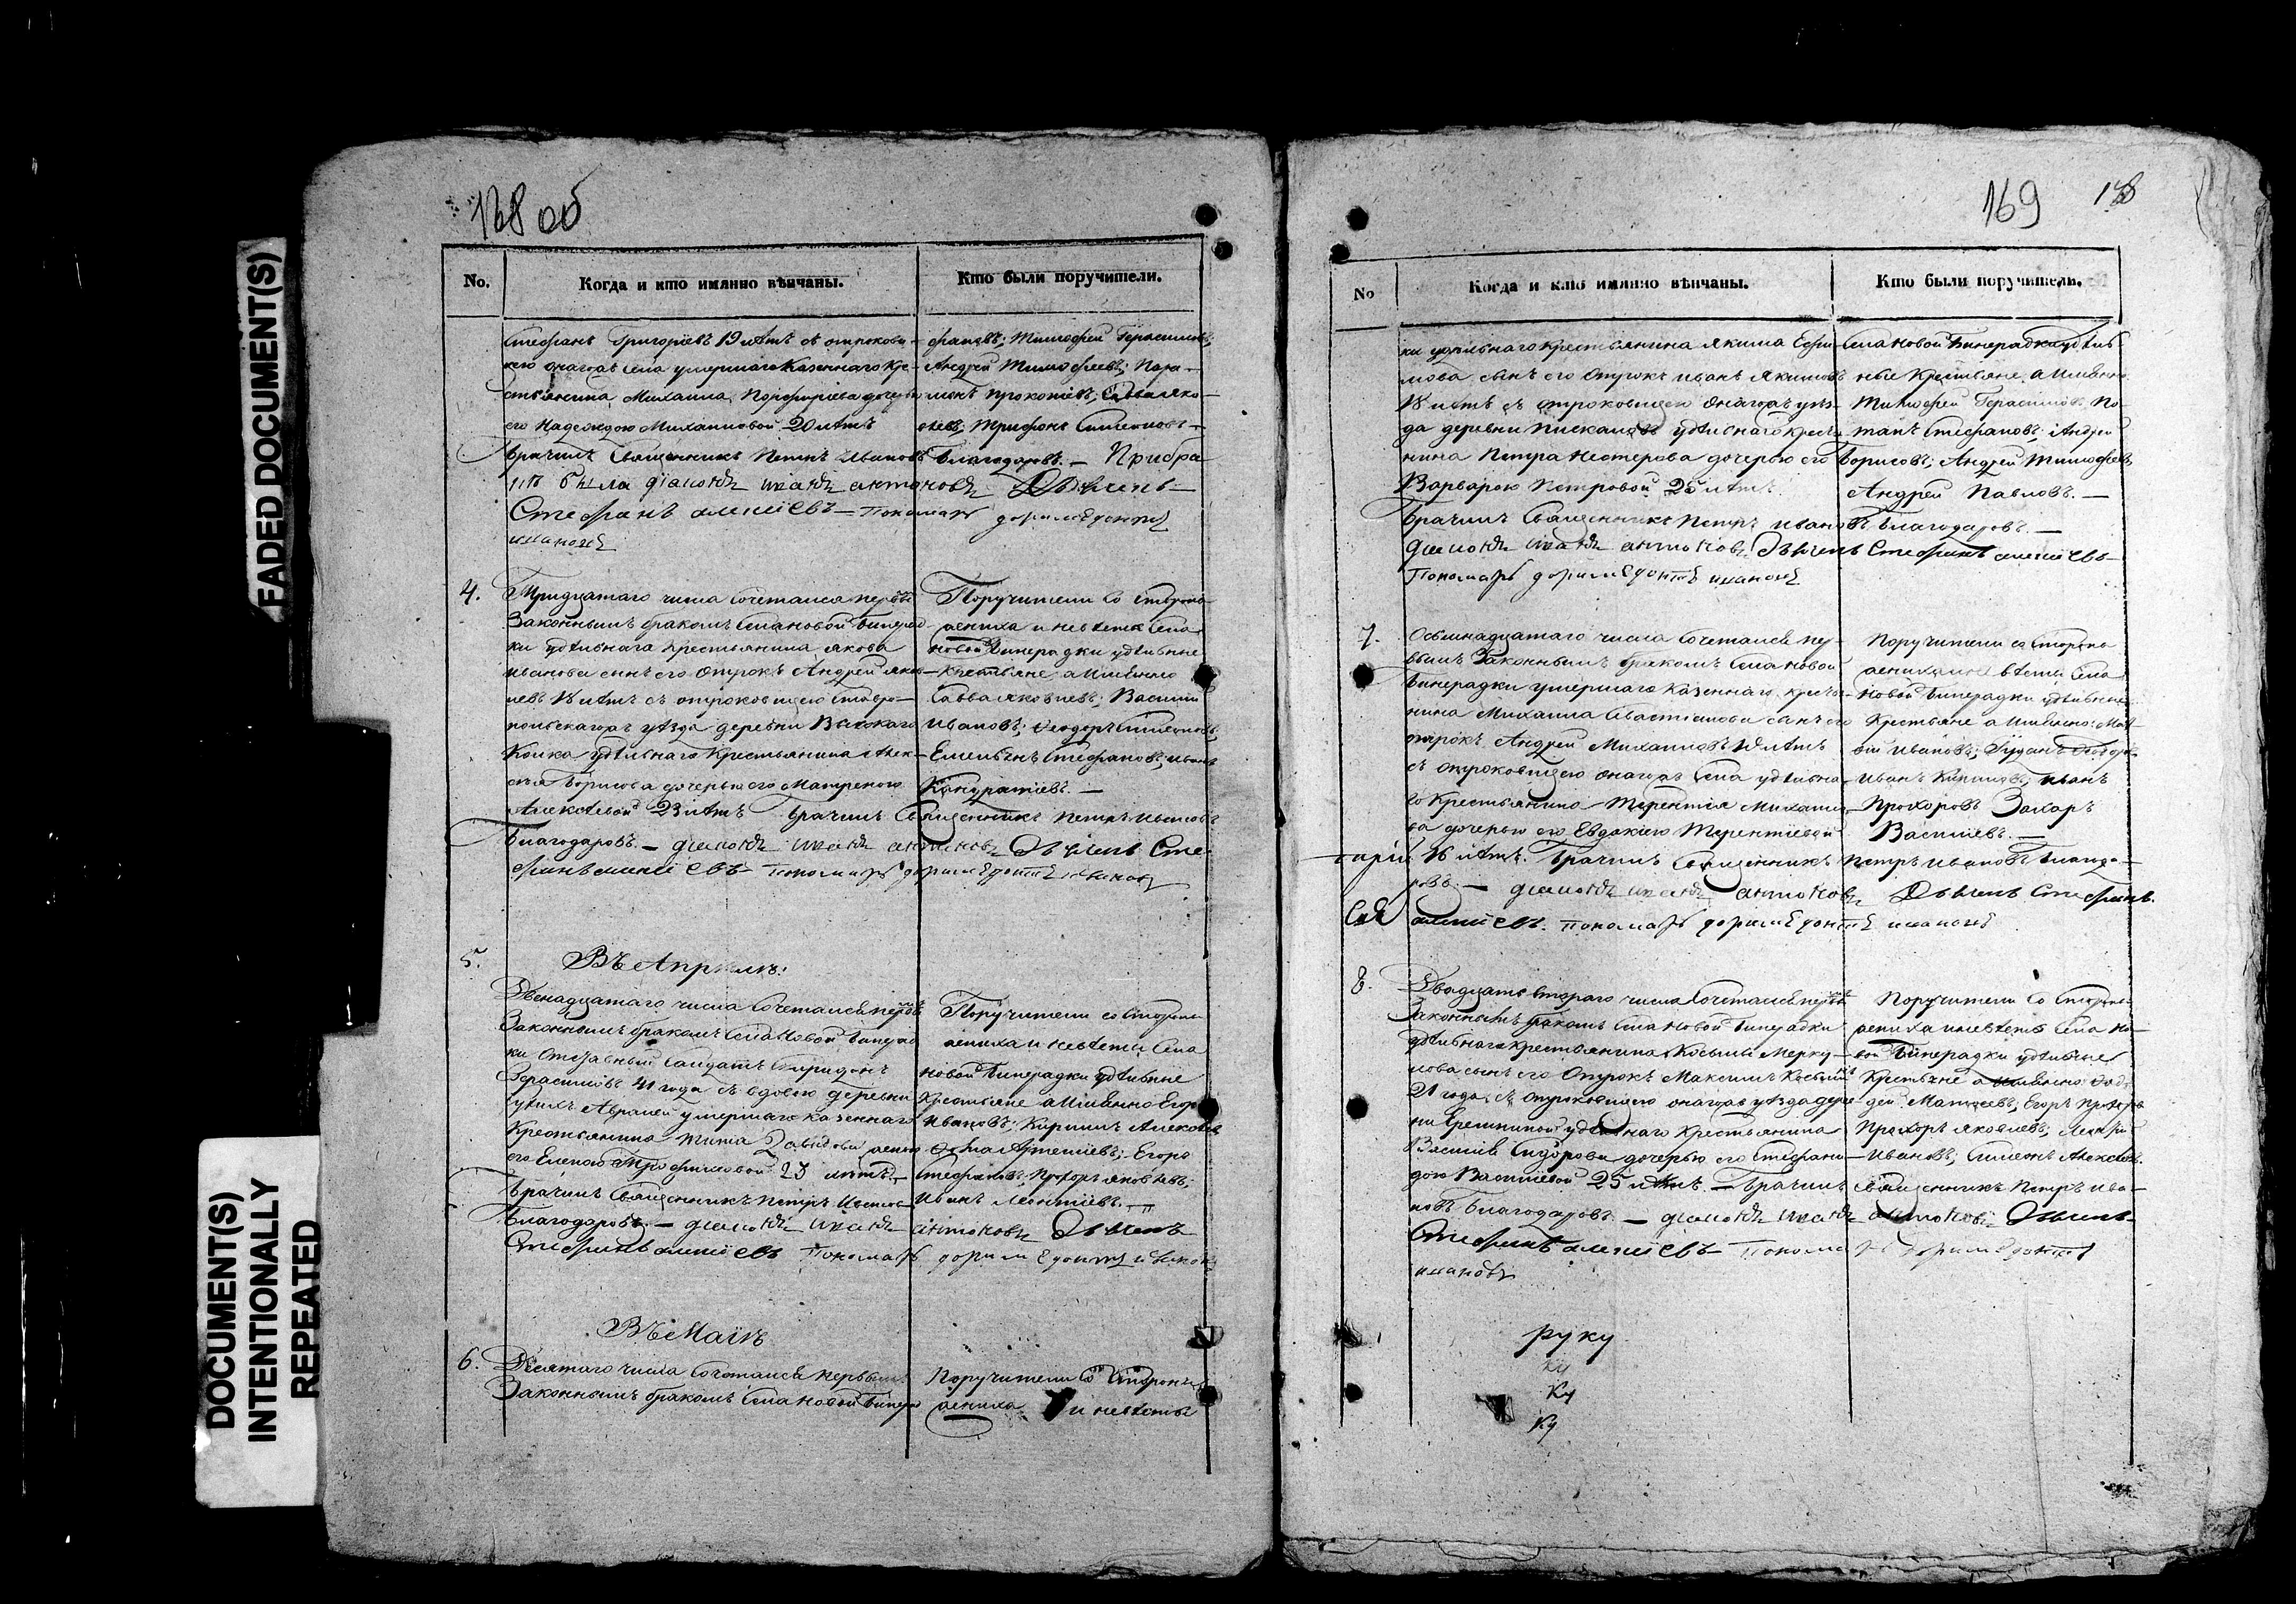 FADED DOCUMENT(S)
DOCUMENT(S)
INTENTIONALLY
REPEATED
168 об
No.
Когда и кто имянно вѣнчаны.
Кто были поручители.
Стефанъ Григорьевъ 19 лѣтъ съ отрокови-
цею онагожъ села умершаго казеннаго кре-
стьянина Михаила Порфирьева дочерью
его Надеждою Михаиловой 20 лѣтъ
Брачилъ Священникъ Петръ Ивановъ Благодаровъ. — При бра
кѣ была діаконъ Иванъ Антоновъ Дьячекъ
Стефанъ Алексіевъ Пономарь доримедонтъ
Ивановъ
фановъ; Тимофей Герасимовъ;
Андрей Тимофеевъ; Пара-
монъ Прокопіевъ; Савва Яко-
влевъ; Трифонъ Симеоновъ
4.
Тридцатаго числа сочетался первымъ
Законнымъ бракомъ села новой Бинерад-
ки удѣльнаго крестьянина Якова
Иванова сынъ его отрокъ Андрей Яков-
левъ 18 лѣтъ съ отроковицею Ставро-
польскагожъ уѣзда деревни Высокаго
Колка удѣльнаго крестьянина Алек-
сѣя Борисова дочерью его Матреною
Алексѣевой 23 лѣтъ Брачилъ Священникъ Петръ Ивановъ
Благодаровъ. — діаконъ Иванъ Антоновъ Дьячекъ Сте-
фанъ Алексіевъ Пономарь доримедонтъ Ивановъ
Поручители со стороны
жениха и невѣсты села
новой Бинерадки удѣльные
крестьяне а имянно
Савва Яковлевъ; Василий
Ивановъ; Феодоръ Симеоновъ;
Емельянъ Стефановъ; Иванъ
Кондратіевъ. —
5.
Въ Апрѣлѣ:
Двенадцатаго числа сочетался первымъ
Законнымъ бракомъ села новой Бинерад
ки отставный салдатъ Спиридонъ
Герасимовъ 41 года съ вдовою деревни
умершаго казеннаго
крестьянина Тита Давыдова женою
его Еленою Трофимовой 23 лѣтъ. —
Брачилъ Священникъ Петръ Ивановъ
Благодаровъ. — діаконъ Иванъ Антоновъ Дьячекъ
Стефанъ Алексіевъ Пономарь доримедонтъ Ивановъ
Поручители со стороны
жениха и невѣсты села
новой Бинерадки удѣльные
крестьяне а имянно Егоръ
Ивановъ; Кирилъ Алексѣевъ
Фома Артеміевъ; Егоръ
Стефановъ; Прохоръ Яковлевъ;
Иванъ Леонтіевъ. —
Въ Маіѣ
6.
Десятаго числа сочетался первымъ
Законнымъ бракомъ села новой Бинерад
Поручители со стороны
жениха и невѣсты
169
No
Когда и кто имянно вѣнчаны.
Кто были поручители.
ки удѣльнаго крестьянина Якима Ефи-
мова сынъ его отрокъ Иванъ Якимовъ
18 лѣтъ съ отроковицею онагожъ уѣз-
да деревни Пискаловъ удѣльнаго кресть-
нина Петра Нестерова дочерью его
Варварою Петровой 25 лѣтъ.
Брачилъ Священникъ Петръ Ивановъ Благодаровъ. —
діаконъ Иванъ Антоновъ Дьячекъ Стефанъ Алексіевъ
Пономарь доримедонтъ Ивановъ
села новой Бинерадки удѣль
ные крестьяне а имянно
Тимофей Герасимовъ По-
тапъ Стефановъ; Андрей
Борисовъ; Андрей Тимофеевъ
Андрей Павловъ. —
7.
Осьмнадцатаго числа сочетался пер-
вымъ Законнымъ бракомъ села новой
Бинерадки умершаго казеннаго кресть-
нина Михаила Севастіанова сынъ его
отрокъ Андрей Михаиловъ 18 лѣтъ
съ отроковицею онагожъ села удѣльна-
го крестьянина Терентія Михаило-
ва дочерью его Евдокіею Терентіевой
16 лѣтъ. Брачилъ Священникъ Петръ Ивановъ Благода-
ровъ. — діаконъ Иванъ Антоновъ Дьячекъ Стефанъ
Алексіевъ. Пономарь доримедонтъ Ивановъ
Поручители со стороны
жениха и невѣсты села
новой Бинерадки удѣльные
крестьяне а имянно: Мат-
вій Ивановъ;
Иванъ Кириловъ; Иванъ
Прохоровъ Захаръ
Василіевъ. —
8.
Двадцать втораго числа сочетался первымъ
Законнымъ бракомъ села новой Бинерадки
удѣльнаго крестьянина Косьмы Мерку-
лова сынъ его отрокъ Максимъ Косьминъ
21 года, съ отроковицею онагожъ уѣзда дерев
ни Еремкиной удѣльнаго крестьянина
Василія Сидорова дочерью его Стефани-
дою Василіевой 25 лѣтъ. — Брачилъ Священникъ Петръ Ива-
новъ Благодаровъ. — діаконъ Иванъ Антоновъ Дьячекъ
Стефанъ Алексіевъ Пономарь доримедонтъ
Ивановъ
Поручители со стороны
жениха и невѣсты села но-
вой Бинерадки удѣльные
крестьяне а имянно: Фад-
дей Матвеевъ; Егоръ Прохоровъ
Прохоръ Яковлевъ;
Ивановъ; Симеонъ Алексѣевъ.
руку
ку
ку
ку